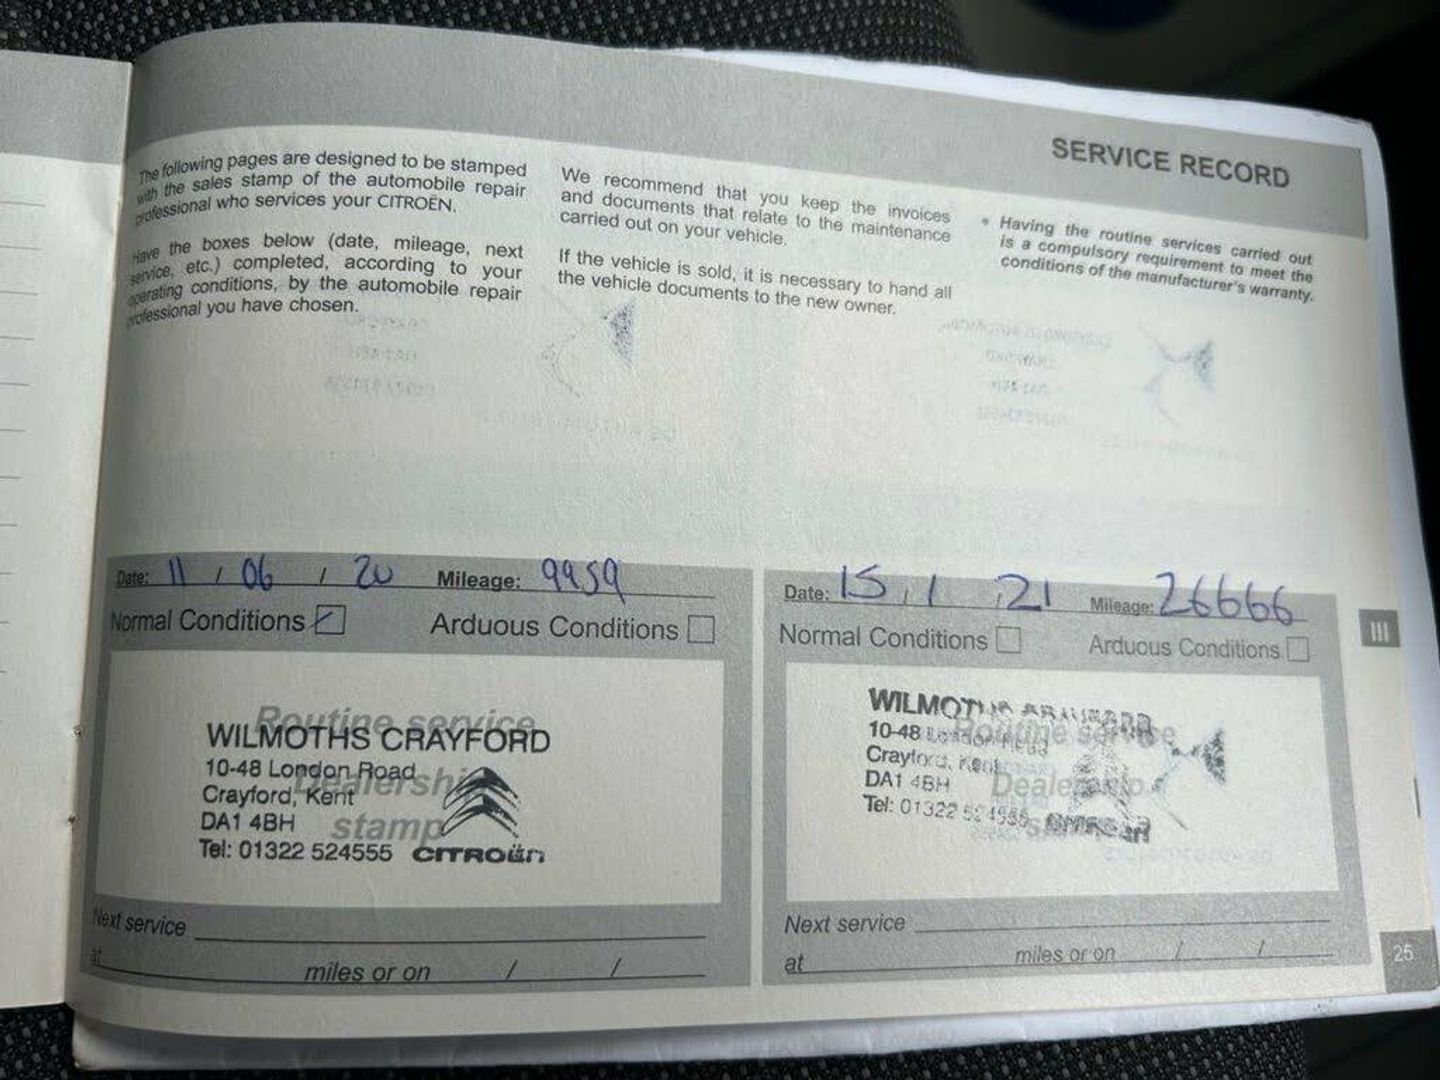 SERVICE RECORD
The following pages are designed to be stamped
with the sales stamp of the automobile repair
professional who services your CITROËN.
Have the boxes below (date, mileage, next
service, etc.) completed, according to your
operating conditions, by the automobile repair
professional you have chosen.
We recommend that you keep the invoices
and documents that relate to the maintenance
carried out on your vehicle.
If the vehicle is sold, it is necessary to hand all
the vehicle documents to the new owner.
• Having the routine services carried out
is a compulsory requirement to meet the
conditions of the manufacturer's warranty.
Date: 11 / 06 / 20 Mileage: 9959
Normal Conditions Arduous Conditions
Routine service
WILMOTHS CRAYFORD
10-48 London Road
Dealership
Crayford, Kent
DA1 4BH
stamp
Tel: 01322 524555 CITROËN
Next service
at miles or on / /
Date: 15 / 1 / 21 Mileage: 26666
Normal Conditions Arduous Conditions
Routine service
10-48 London Road
Crayford, Kent
Dealership
DA1 4BH
Tel: 01322
Next service
at miles or on / /
III
25